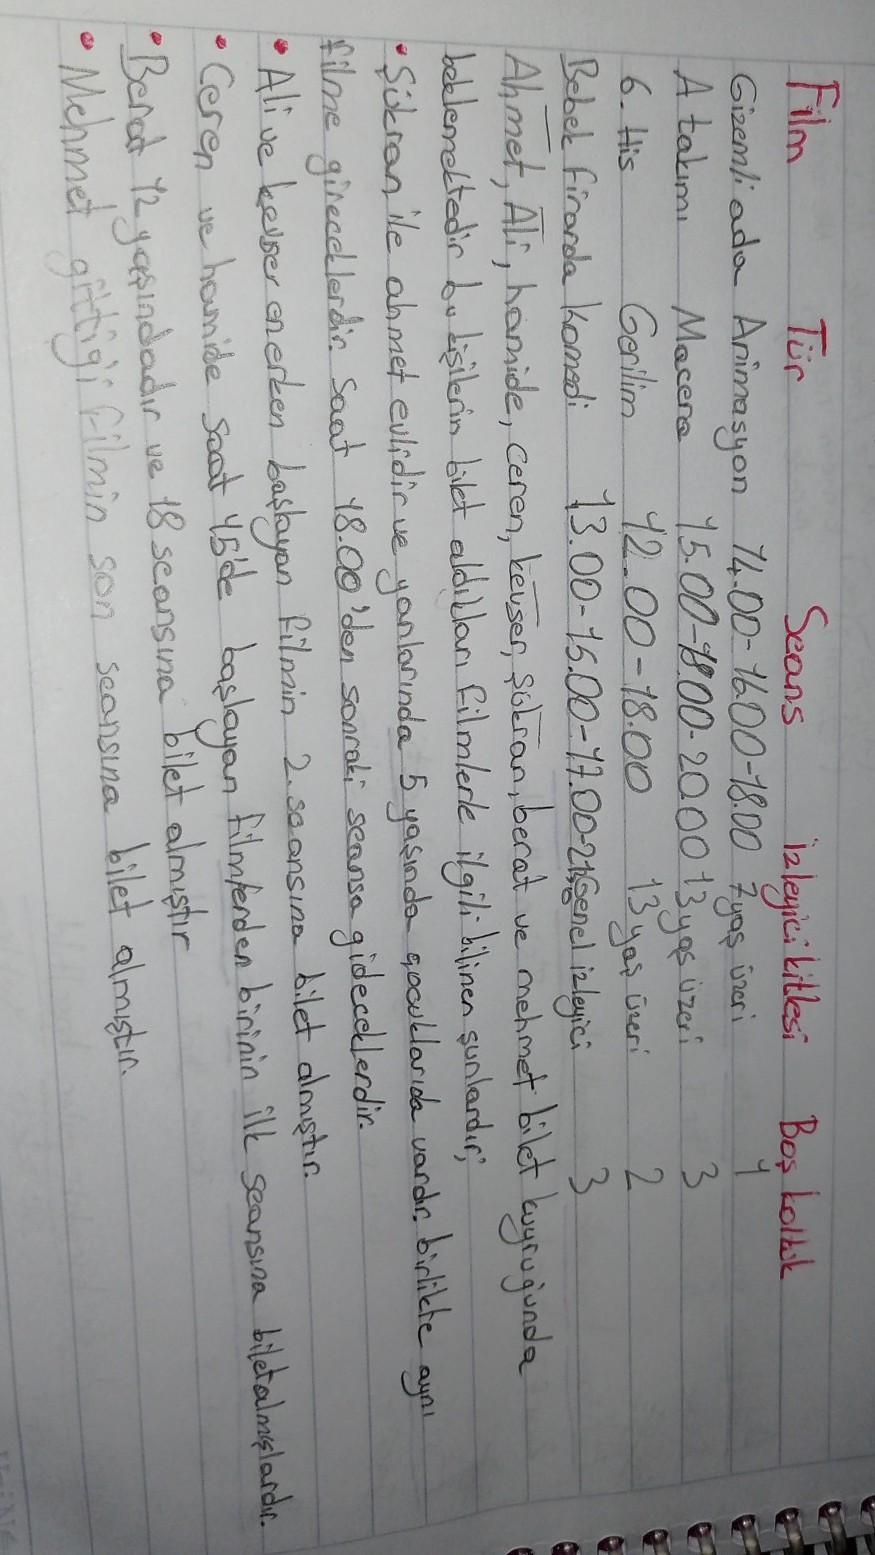 Film Tür Seans izleyici kitlesi Boş koltuk
Gizemli ada Animasyon 14.00-16.00-18.00 7 yaş üzeri 1
A takımı Macera 15.00-18.00-20.00 13 yaş üzeri 3
6. His Gerilim 12.00-18.00 13 yaş üzeri 2
Bebek firarda komedi 13.00-15.00-17.00-21.00 Genel izleyici 3
Ahmet, Ali, hamide, ceren, kevser, şükran, berat ve mehmet bilet kuyruğunda
beklemektedir bu kişilerin bilet aldıkları filmlerle ilgili bilinen şunlardır;
• Şükran ile ahmet evlidir ve yanlarında 5 yaşında çocuklarıda vardır. birlikte aynı
filme gireceklerdir. Saat 18.00'den sonraki seansa gideceklerdir.
• Ali ve kevser en erken başlayan filmin 2. seansına bilet almıştır.
• Ceren ve hamide saat 15'de başlayan filmlerden birinin ilk seansına bilet almışlardır.
• Berat 12 yaşındadır ve 18 seansına bilet almıştır
• Mehmet gittiği filmin son seansına bilet almıştır.